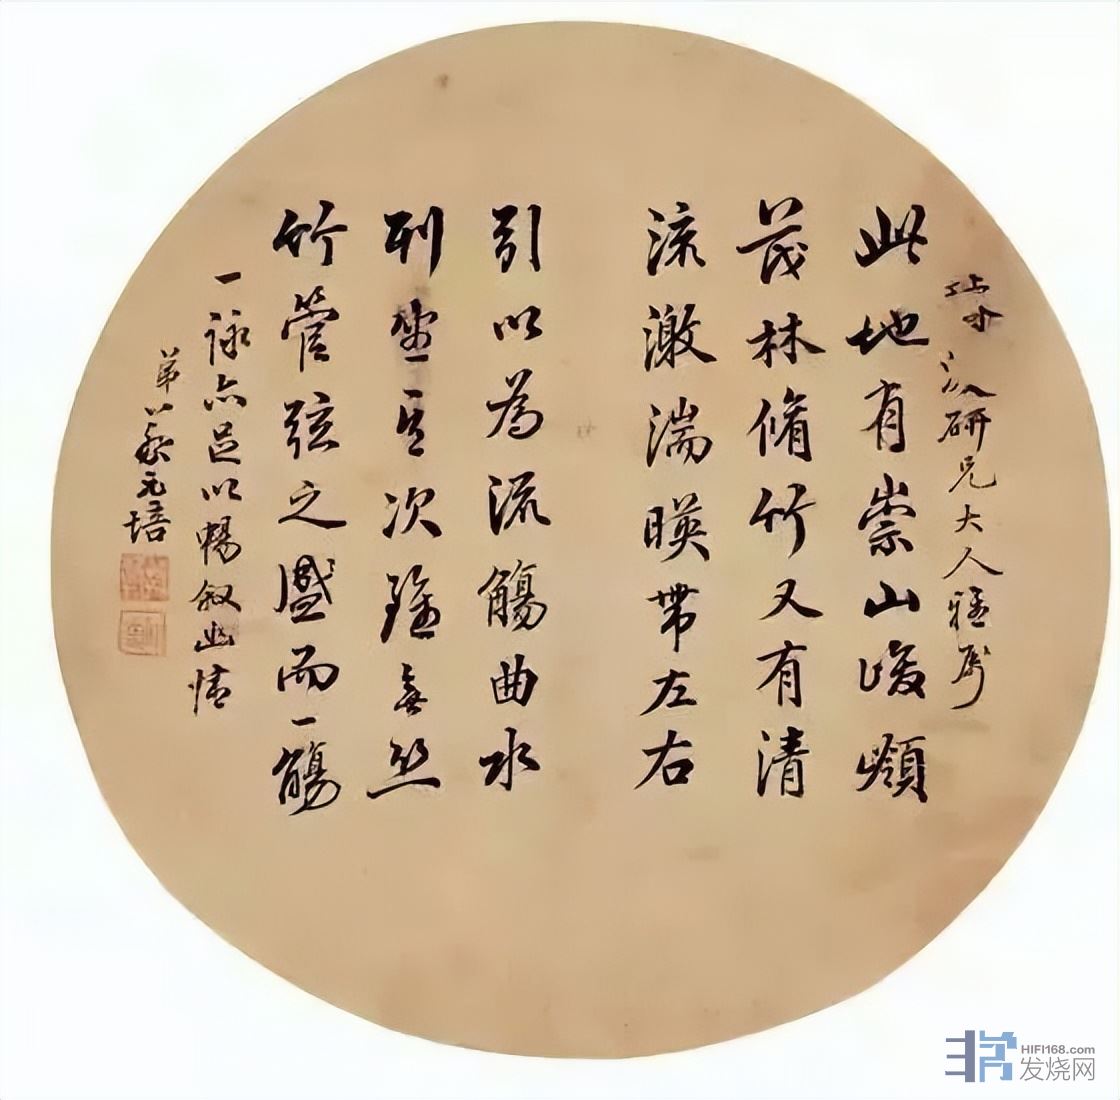 研兄大人雅屬
此地有崇山峻嶺
茂林脩竹又有清
流激湍暎帶左右
引以為流觴曲水
列坐其次雖無絲
竹管弦之盛而一觴
一詠亦足以暢叙幽情
弟蔡元培
HIFI168.com
发烧网